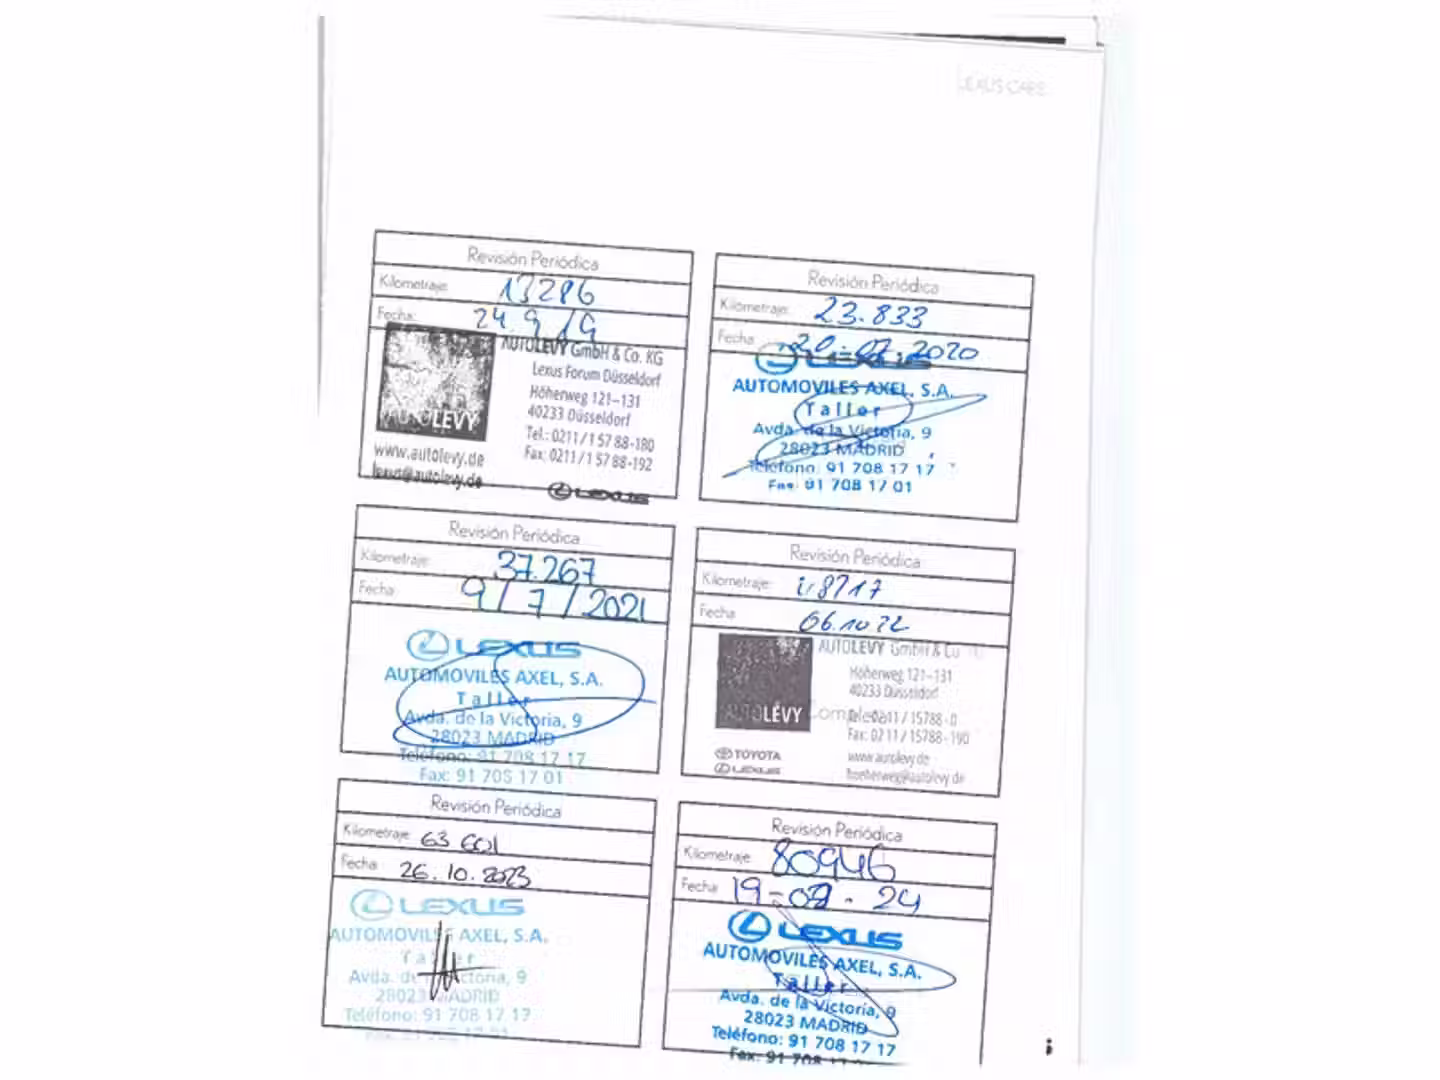 LEXUS CARE
Revisión Periódica
Kilometraje: 13286
Fecha: 24.9/19
AUTOLEVY GmbH & Co. KG
Lexus Forum Düsseldorf
Höherweg 121–131
40233 Düsseldorf
Tel.: 0211/1 57 88-180
Fax: 0211/1 57 88-192
AUTOLEVY
www.autolevy.de
lexus@autolevy.de
LEXUS
Revisión Periódica
Kilometraje: 23.833
Fecha: 20-07-2020
LEXUS
AUTOMOVILES AXEL, S.A.
Taller
Avda. de la Victoria, 9
28023 MADRID
Teléfono: 91 708 17 17
Fax: 91 708 17 01
Revisión Periódica
Kilometraje: 37.267
Fecha: 9/7/2021
LEXUS
AUTOMOVILES AXEL, S.A.
Taller
Avda. de la Victoria, 9
28023 MADRID
Teléfono: 91 708 17 17
Fax: 91 708 17 01
Revisión Periódica
Kilometraje:
Fecha: 06.10 22
AUTOLEVY GmbH & Co
Höherweg 121–131
40233 Düsseldorf
Tel.: 0211 / 15788-0
Fax: 0211 / 15788-190
AUTOLÉVY
TOYOTA
LEXUS
www.autolevy.de
hoeherweg@autolevy.de
Revisión Periódica
Kilometraje: 63 601
Fecha: 26.10.2023
LEXUS
AUTOMOVILES AXEL, S.A.
Taller
Avda. de la Victoria, 9
28023 MADRID
Teléfono: 91 708 17 17
Revisión Periódica
Kilometraje: 80946
Fecha: 19-08-24
LEXUS
AUTOMOVILES AXEL, S.A.
Taller
Avda. de la Victoria, 9
28023 MADRID
Teléfono: 91 708 17 17
Fax: 91 708 17